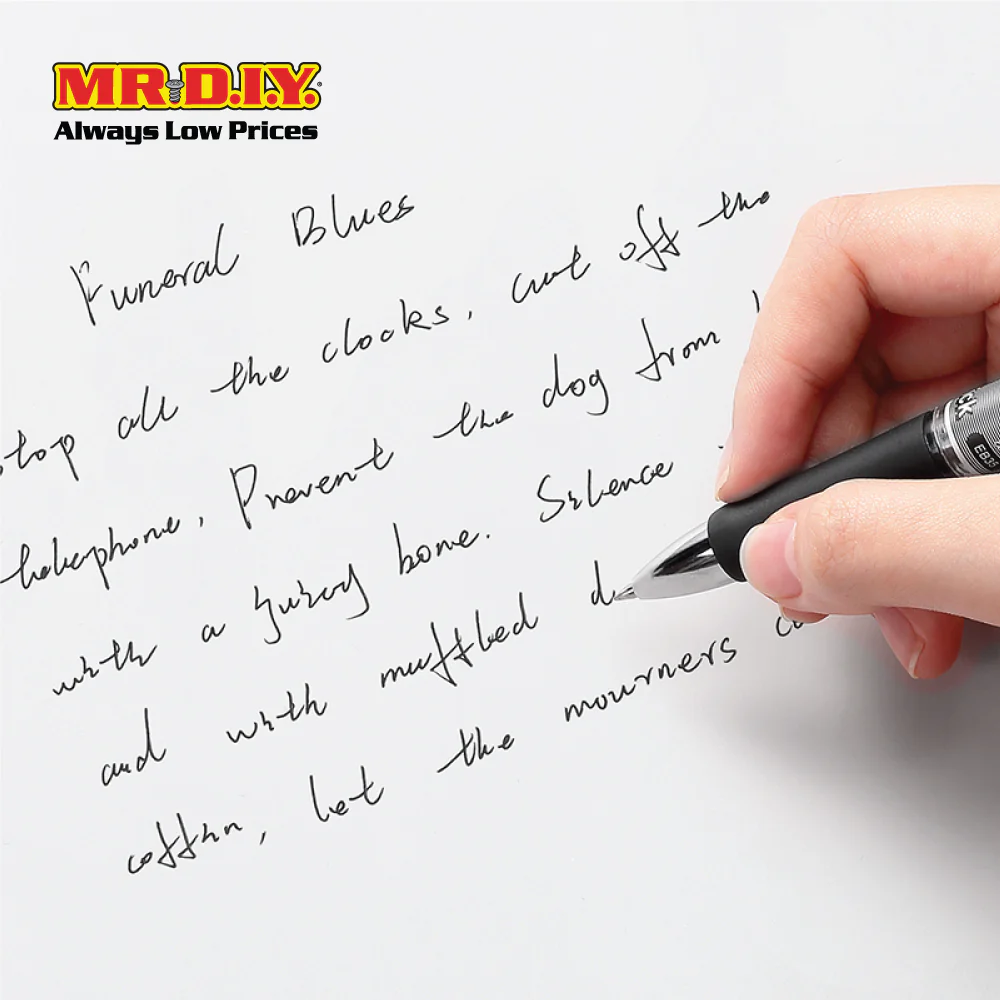 MR.D.I.Y.
Always Low Prices
Funeral Blues
stop all the clocks, cut off the
telephone, Prevent the dog from
with a juicy bone. Silence
and with muffled d
coffin, let the mourners c
ck
EB35